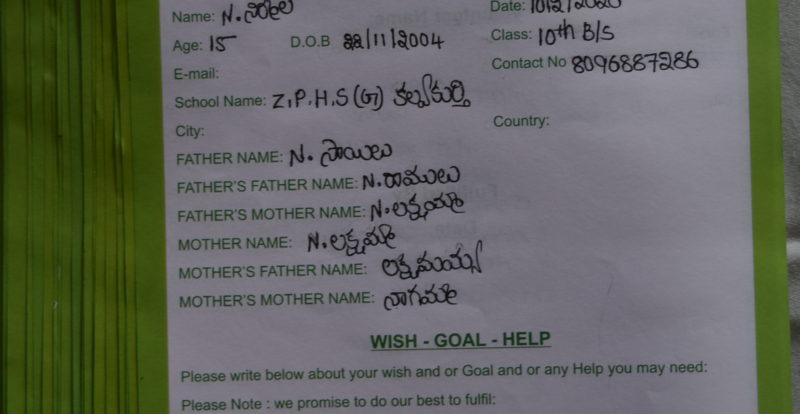 Name: N. నిర్మల Date: 10/2/2020
Age: 15 D.O.B 22/11/2004 Class: 10th B/S
E-mail: Contact No 8096887286
School Name: Z.P.H.S (G) కల్వకుర్తి
City: Country:
FATHER NAME: N. సాయిలు
FATHER'S FATHER NAME: N. రాములు
FATHER'S MOTHER NAME: N. లక్ష్మమ్మ
MOTHER NAME: N. లక్ష్మమ్మ
MOTHER'S FATHER NAME: లక్ష్మయ్య
MOTHER'S MOTHER NAME: నాగమ్మ
WISH - GOAL - HELP
Please write below about your wish and or Goal and or any Help you may need:
Please Note : we promise to do our best to fulfil: